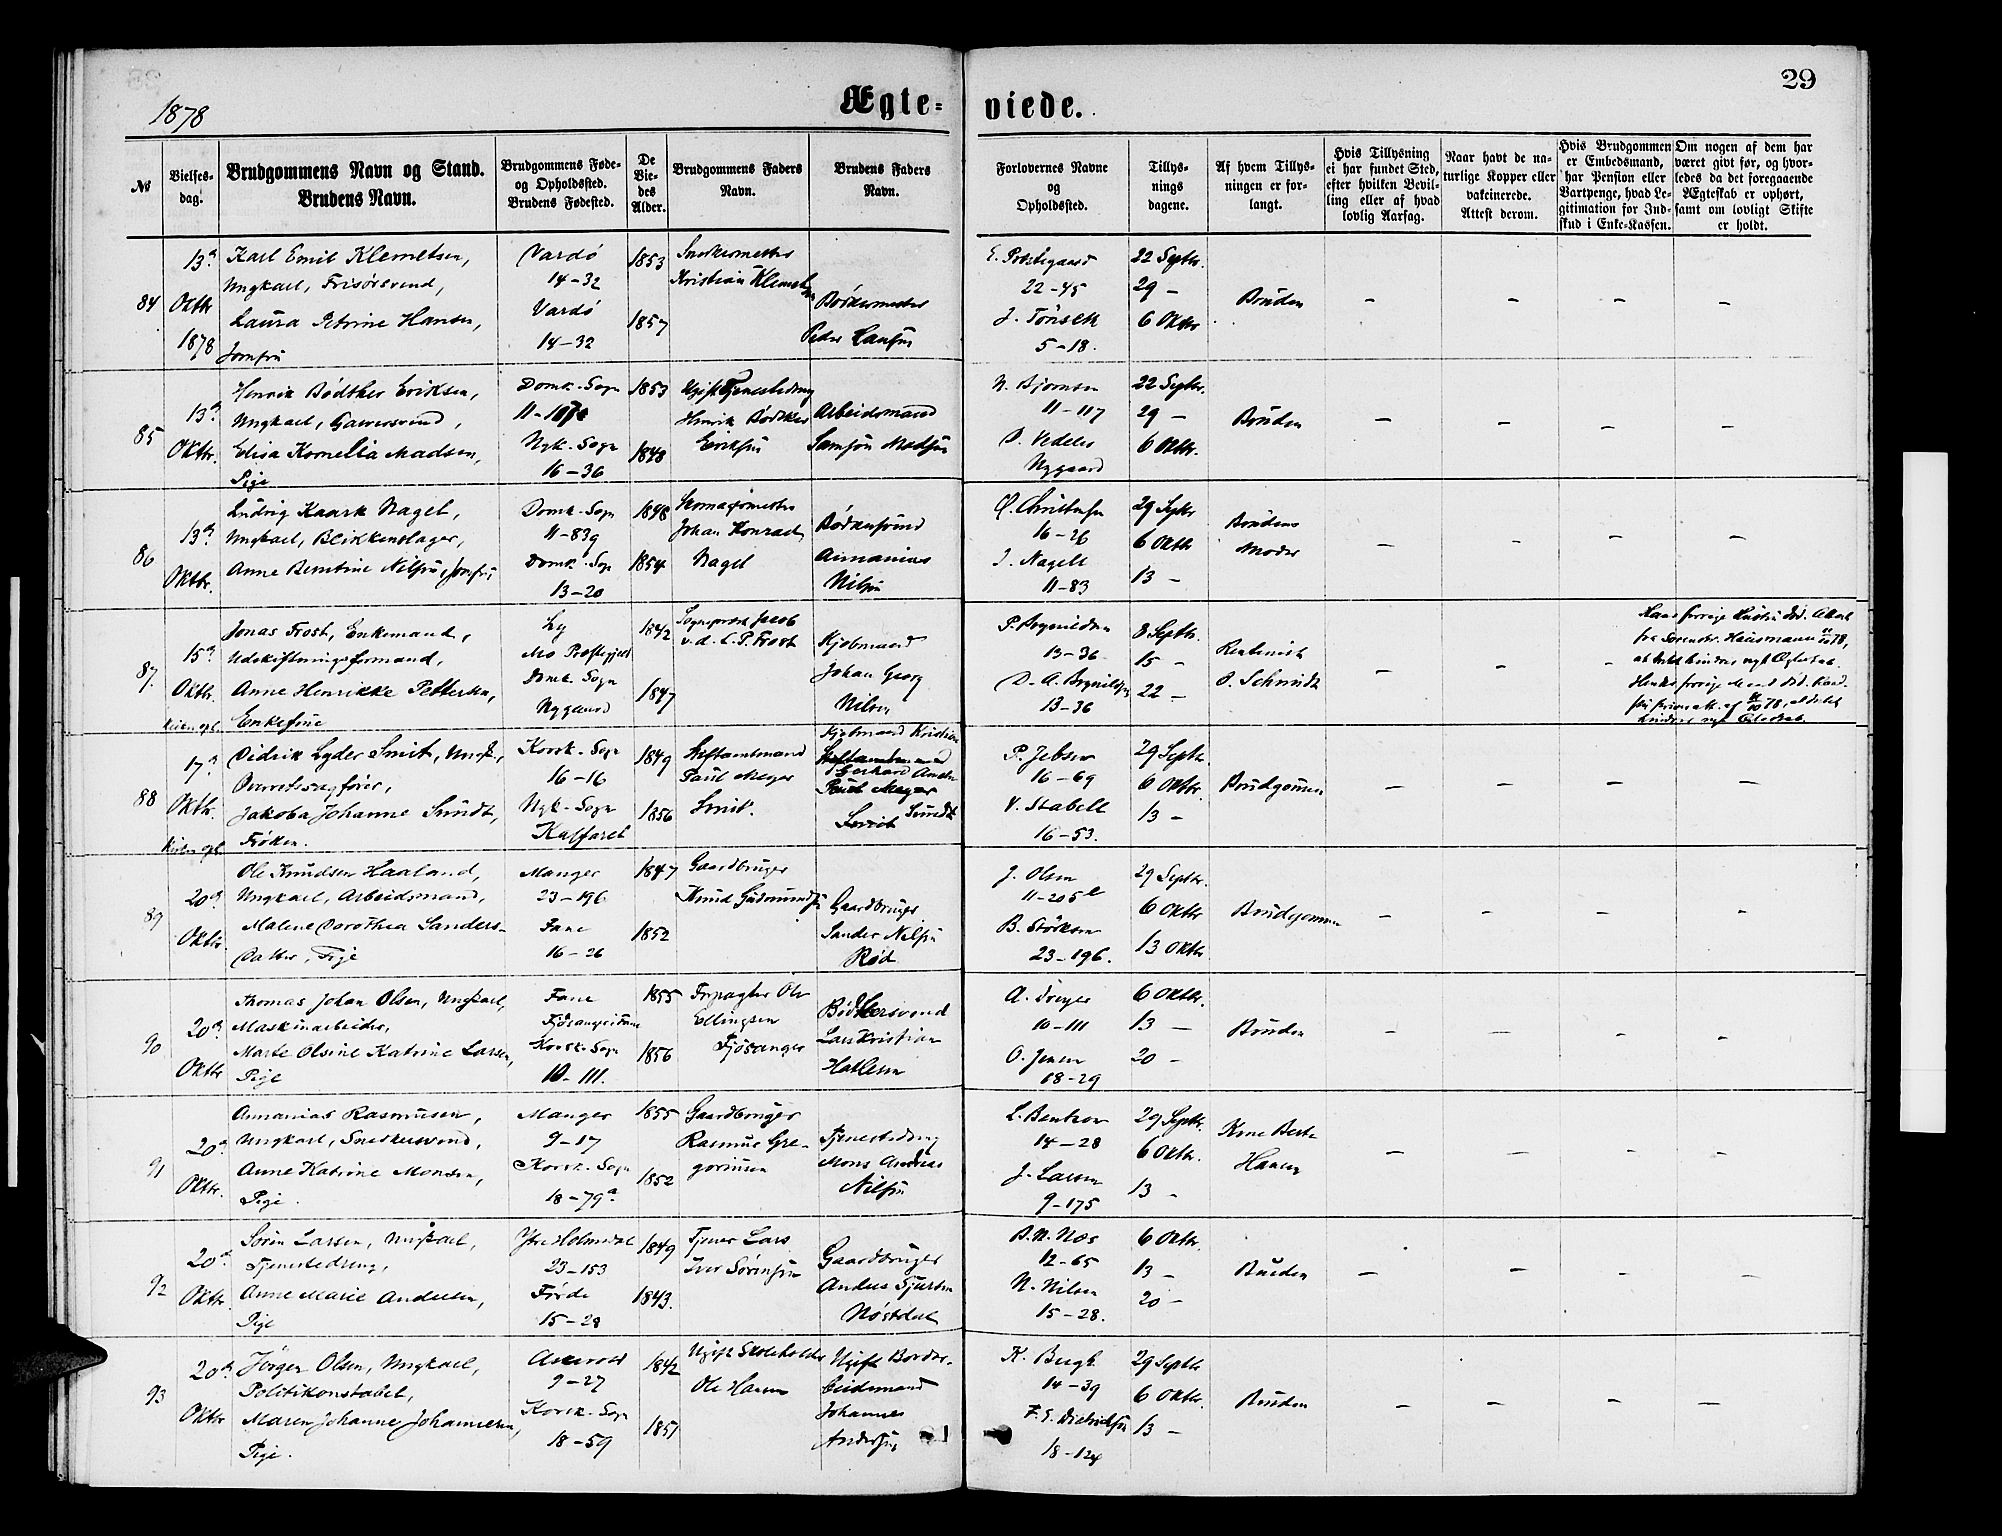 29
1878
Ægte-
viede.
No
Vielses-
dag.
Brudgommens Navn og Stand.
Brudens Navn.
Brudgommens Føde-
og Opholdssted.
Brudens Fødested.
De
Vie-
des
Alder.
Brudgommens Faders
Navn.
Brudens Faders
Navn.
Forlovernes Navne
og
Opholdssted.
Tillys-
nings
dagene.
Af hvem Tillys-
ningen er for-
langt.
Hvis Tillysning
ei har fundet Sted,
efter hvilken Bevil-
ling eller af hvad
lovlig Aarsag.
Naar havt de na-
turlige Kopper eller
vakcinerede.
Attest derom.
Hvis Brudgommen
er Embedsmand,
har Pension eller
Vartpenge, hvad Le-
gitimation for Ind-
skud i Enke-Kassen.
Om nogen af dem har
været givt før, og hvor-
ledes da det foregaaende
Ægteskab er ophørt,
samt om lovligt Skifte
er holdt.
84
13
Oktbr
1878
Karl Emil Klemetsen,
Ungkarl, Frisørsvend,
Laura Petrine Hansen,
Jomfru
Vardö
14-32
Vardö
14-32
1853
1857
Snedkermester
Kristian Klemetsen
Bödkermester
Peder Hansen
22-45
5-18.
22 Septbr.
29 -
6 Oktbr
Bruden
85
13
Oktbr.
Henrik Bödtker Eriksen,
Ungkarl, Garversvend,
Elisa Kornelia Madsen,
Pige
Domk.-Sogn
Nyk.-Sogn
16-36
1853
1848
Ugift Tjenestedreng
Henrik Bödtker
Eriksen
Arbeidsmand
Samson Madsen
N. Bjørnsen
11-117
D. Vedeler
Nygaard
22 Septbr.
29 -
6 Oktbr.
Bruden
86
13
Oktbr.
Ludvig Kaark Nagel,
Ungkarl, Blikkenslager,
Anne Berntine Nilsen, Jomfru
Domk.-Sogn
11-839
Domk.-Sogn
13-20
1848
1854
Skomagermester
Johan Konrad
Nagel
Bödkersvend
Annanias
Nilsen
16-26
J. Nagell
11-83
29 Septbr
6 Oktbr
13 -
Brudens
Moder
87.
15
Oktbr.
Jonas Frost, Enkemand,
Udskiftningsformand,
Anne Henrikke Pettersen,
Enkefrue
Mo Præstegjeld
Domk. Sogn
Nygaard
1842
1847
Sogneprest Jacob
v.d. L.P. Frost
Kjøbmand
Johan Georg
Nilsen
13-36
13-36
8 Septbr.
15 -
22 -
O. Schmidt
88
17
Oktbr.
Didrik Lyder Smit, Ungk.,
Overretssagfører,
Jakoba Johanne Sundt,
Frøken.
Korsk.-Sogn
16-16
Nyk.-Sogn
Kalfaret
1849
1856
Stiftamtmand
Paul Meyer
Smit.
Kjøbmand Kristian
Gerhard
Sundt
P. Jebsen
16-69
V. Stabell
16-53.
29 Septbr.
6 Oktbr.
13 -
Brudgommen
89
20
Oktbr.
Ole Knudsen Haaland,
Ungkarl, Arbeidsmand,
Malene Dorothea Sanders-
Datter, Pige
Manger
23-196
Fane
16-26
1847
1852
Gaardbruger
Knud Gudmundsen
Gaardbruger
Sander Nilsen
Rød
J. Olsen
11-205
B. Störksen
23-196.
29 Septbr.
6 Oktbr
13 Oktbr
Brudgommen
90
20
Oktbr
Thomas Johan Olsen, Ungkarl,
Maskinarbeider,
Marte Olsine Katrine Larsen,
Pige
Fane
Korsk.-Sogn
10-111.
1855
1856
Forpagter Ole
Ellingsen
Fjösanger
Bödkersvend
Lars Kristian
Hatlesen
A. Dreyer
10-111
O. Jensen
18-29
6 Oktbr.
13 -
20 -
Bruden
91
20
Oktbr.
Annanias Rasmusen,
Ungkarl, Snedkersvend,
Anne Katrine Monsen,
Pige.
Manger
9-17
Korsk.-Sogn
18-79a
1855
1852
Gaardbruger
Rasmus Gre-
goriussen
Tjenestedreng
Mons Andreas
Nilsen
L. Bentzen
14-28
J. Larsen
9-175
29 Septbr.
6 Oktbr.
13 -
Kone Berte
Hansen
92
20
Oktbr.
Sören Larsen, Ungkarl,
Tjenestedreng,
Anne Marie Andersen,
Pige
Ytre Holmedal
23-153
Förde
15-28
1849
1843.
Tjener Lars
Iver Sörensen
Gaardbruger
Anders Sjursen
Nöstdal
12-65
N. Nilsen
15-28.
6 Oktbr.
13 -
20 -
Bruden
93
20
Oktbr
Jörgen Olsen, Ungkarl,
Politikonstabel,
Maren Johanne Johannesen,
Pige.
Askvold
9-27
Korsk.-Sogn
18-59
1842
1851
Ugift Skoleholder
Ole Hansen
Ugift Bordar-
beidsmand
Johannes
Andersen
K. Bergh
14-39
F. E. Dietrichson
18-124
29 Septbr
6 Oktbr.
13 -
Bruden